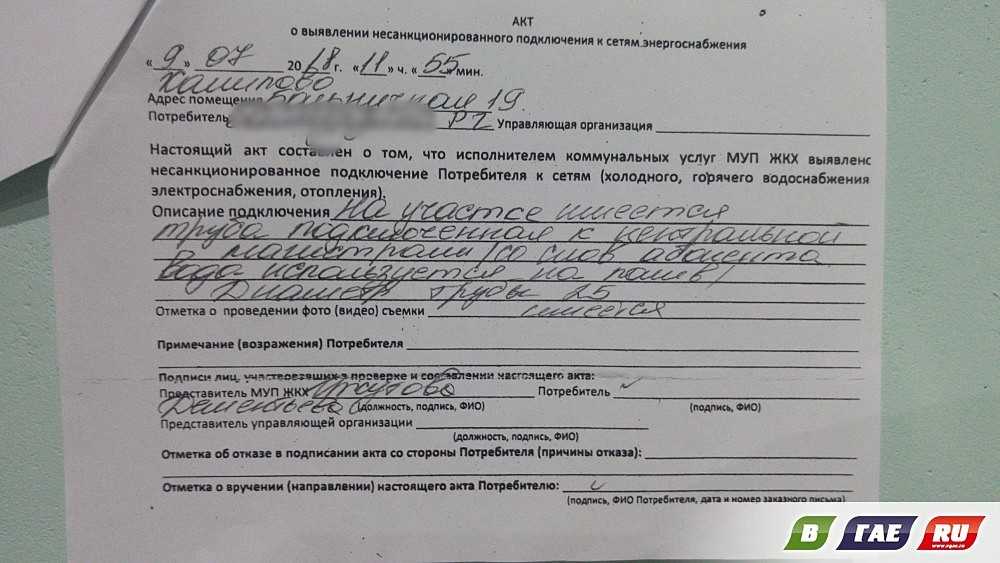 АКТ
о выявлении несанкционированного подключения к сетям энергоснабжения
« 9 » 07 2018 г. «11» ч. «55» мин.
Халилово
Адрес помещения Больничная 19.
Потребитель Р.Г. Управляющая организация
Настоящий акт составлен о том, что исполнителем коммунальных услуг МУП ЖКХ выявленс
несанкционированное подключение Потребителя к сетям (холодного, горячего водоснабжения
электроснабжения, отопления).
Описание подключения На участке имеется
труба подключенная к центральной
магистрали (со слов абонента
вода используется на полив)
Диаметр трубы 25
Отметка о проведении фото (видео) съемки имеется
Примечание (возражения) Потребителя
Подписи лиц, участвовавших в проверке и составлении настоящего акта:
Представитель МУП ЖКХ Потребитель
Дементьева (должность, подпись, ФИО) (подпись, ФИО)
Представитель управляющей организации
(должность, подпись, ФИО)
Отметка об отказе в подписании акта со стороны Потребителя (причины отказа):
Отметка о вручении (направлении) настоящего акта Потребителю:
(подпись, ФИО Потребителя, дата и номер заказного письма)
В ГАЕ RU
www.vgae.ru